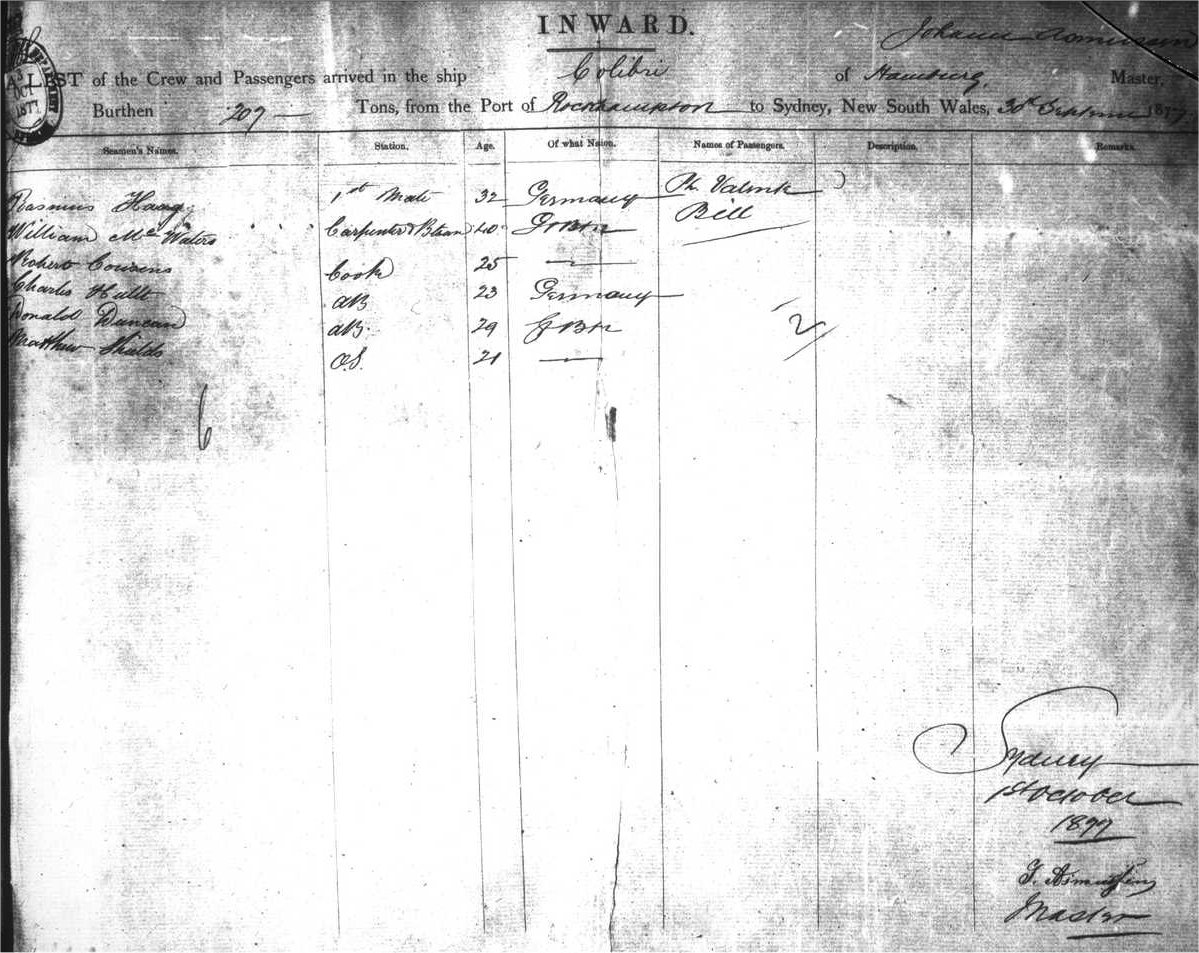 INWARD.
Johann Asmussen
A LIST of the Crew and Passengers arrived in the ship Colibri of Hamburg, Master,
Burthen 207 Tons, from the Port of Rockhampton to Sydney, New South Wales, 30th September 1877
OCT
1877
Seamen's Names. Station. Age. Of what Nation. Names of Passengers. Description. Remarks.
Rasmus Haag 1st Mate 32 Germany Ph. Valink
William McWaters Carpenter & Btsan 40 G Btn Bill
Robert Cousens Cook 25 —
Charles Hullt AB 23 Germany
Donald Duncan AB. 29 G Btn 2/
Matthew Shields O.S. 21 —
6
Sydney
1st October
1877
J. Asmussen
Master